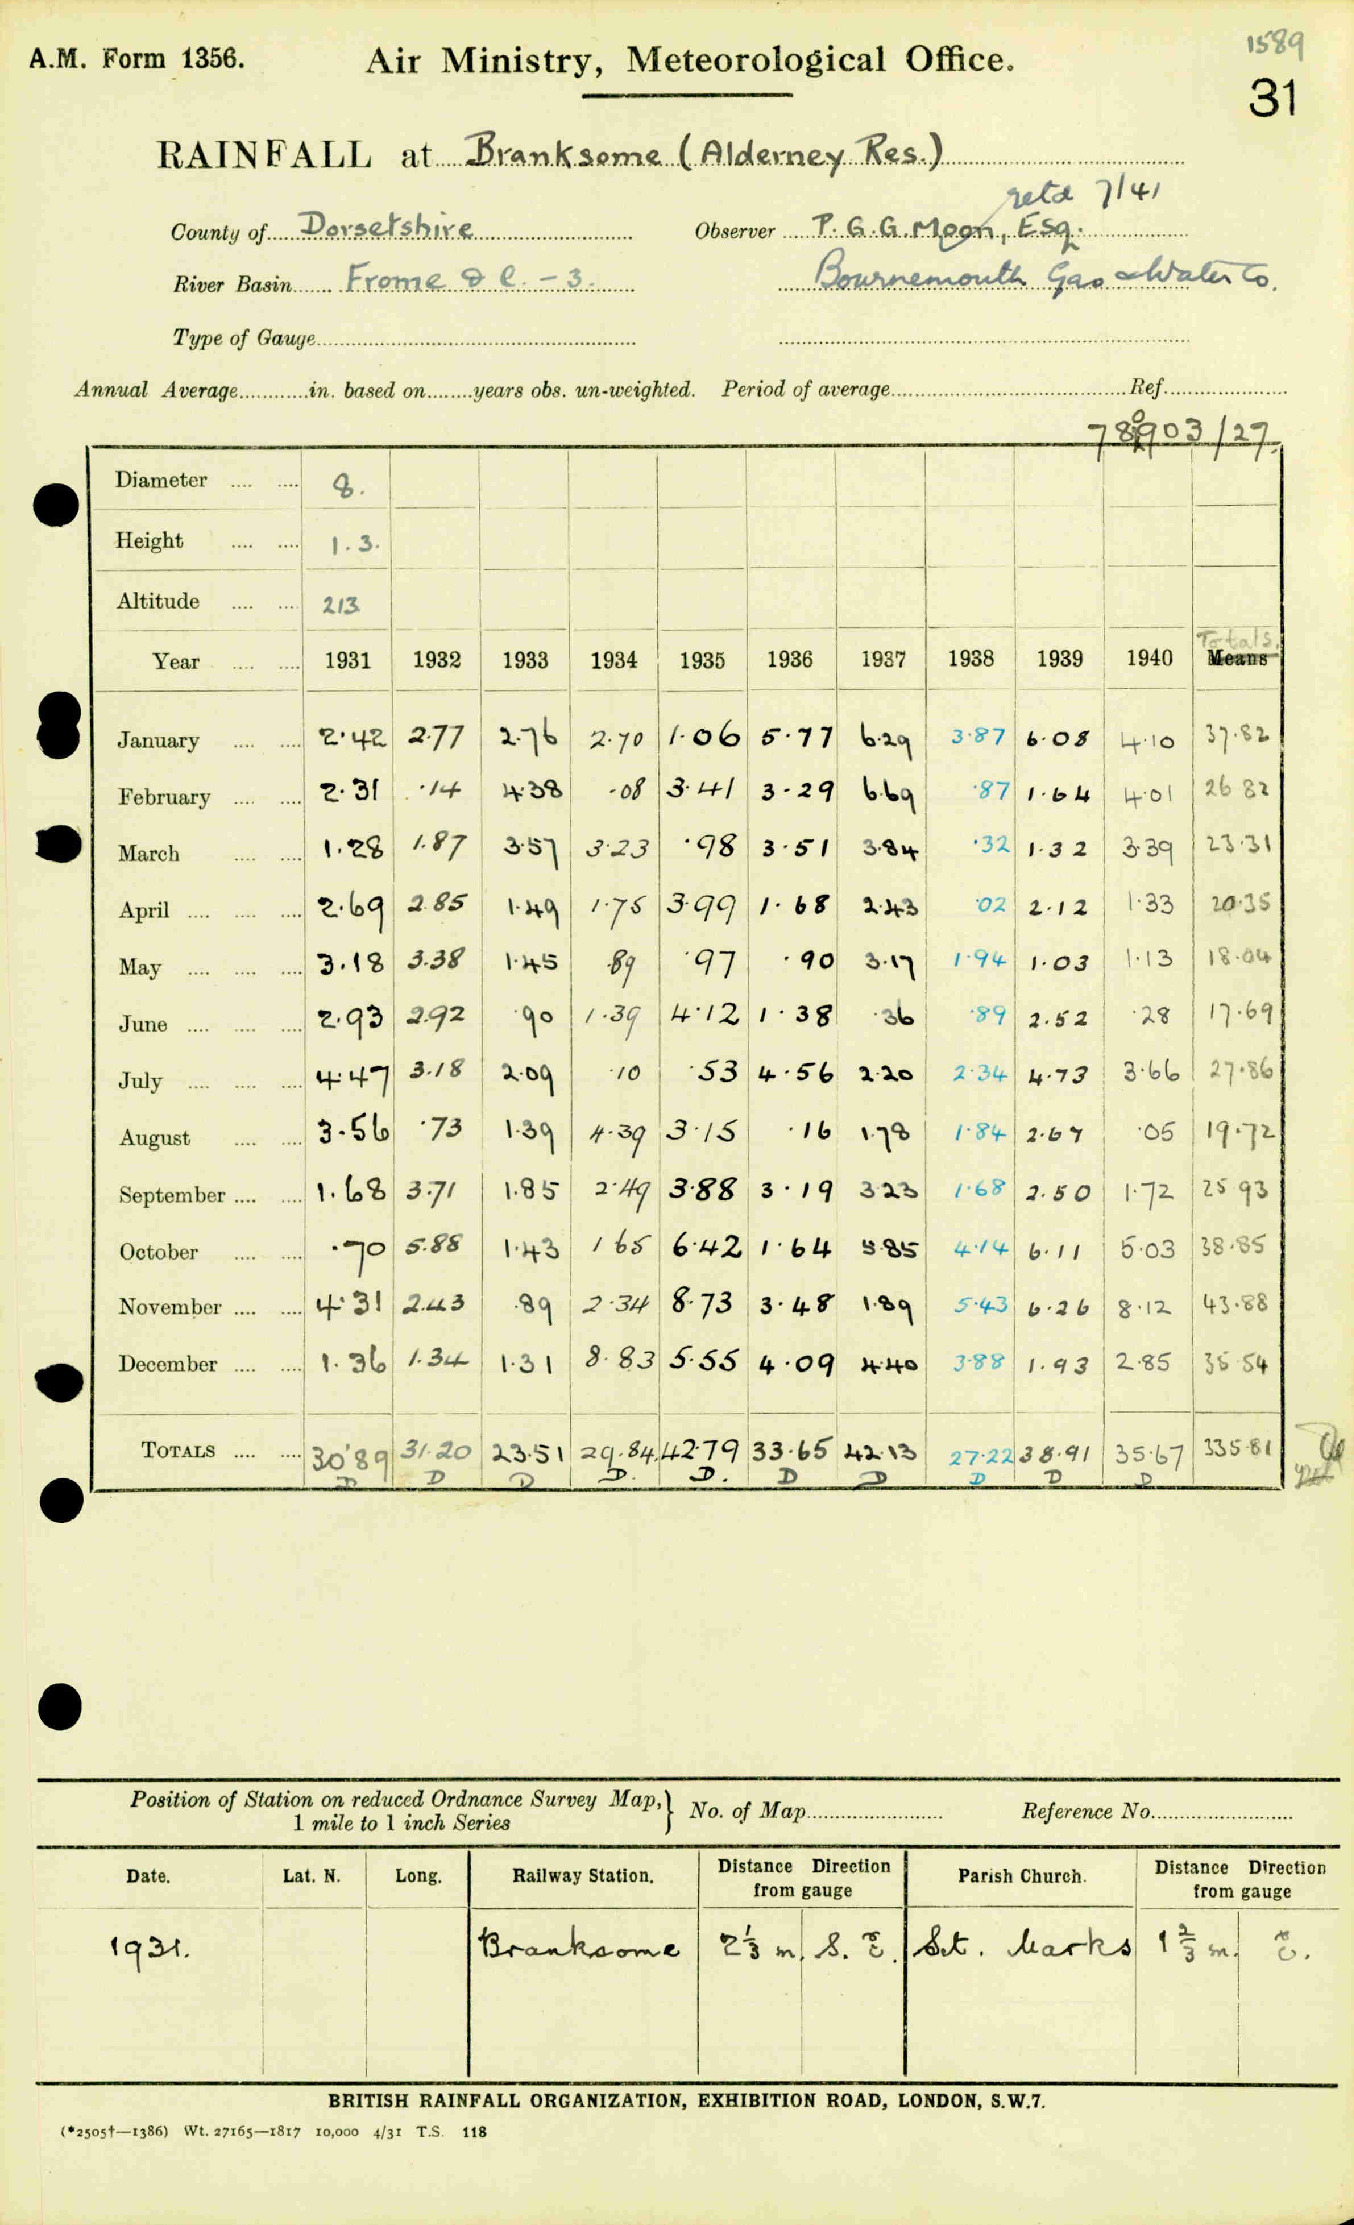 1589
A.M. Form 1356. Air Ministry, Meteorological Office.
31
RAINFALL at Branksome (Alderney Res.)
retd 7/41
County of Dorsetshire Observer P. G. G. Moon, Esq.
River Basin Frome &c. - 3. Bournemouth Gas & Water Co.
Type of Gauge
Annual Average in. based on years obs. un-weighted. Period of average Ref.
903/27.
Diameter 8.
Height 1.3.
Altitude 213
Totals.
Year 1931 1932 1933 1934 1935 1936 1937 1938 1939 1940 Means
January 2.42 2.77 2.76 2.70 1.06 5.77 6.29 3.87 6.08 4.10 37.82
February 2.31 .14 4.38 .08 3.41 3.29 6.69 .87 1.64 4.01 26 82
March 1.28 1.87 3.57 3.23 .98 3.51 3.84 .32 1.32 3.39 23.31
April 2.69 2.85 1.49 1.75 3.99 1.68 2.43 .02 2.12 1.33 20.35
May 3.18 3.38 1.45 .89 .97 .90 3.17 1.94 1.03 1.13 18.04
June 2.93 2.92 .90 1.39 4.12 1.38 .36 .89 2.52 .28 17.69
July 4.47 3.18 2.09 .10 .53 4.56 2.20 2.34 4.73 3.66 27.86
August 3.56 .73 1.39 4.39 3.15 .16 1.78 1.84 2.67 .05 19.72
September 1.68 3.71 1.85 2.49 3.88 3.19 3.23 1.68 2.50 1.72 25 93
October .70 5.88 1.43 1 65 6.42 1.64 5.85 4.14 6.11 5.03 38.85
November 4.31 2.43 .89 2.34 8.73 3.48 1.89 5.43 6.26 8.12 43.88
December 1.36 1.34 1.31 8.83 5.55 4.09 4.40 3.88 1.93 2.85 35 54
TOTALS 30.89 31.20 23.51 29.84 42.79 33.65 42.13 27.22 38.91 35.67 335.81
D D D D. D. D D D D D
Position of Station on reduced Ordnance Survey Map, } No. of Map Reference No.
1 mile to 1 inch Series
Date. Lat. N. Long. Railway Station. Distance Direction from gauge Parish Church. Distance Direction from gauge
1931. Branksome 2⅓ m. S. E. St. Marks 1⅔ m. E.
BRITISH RAINFALL ORGANIZATION, EXHIBITION ROAD, LONDON, S.W.7.
(*2505†—1386) Wt. 27165—1817 10,000 4/31 T.S. 118